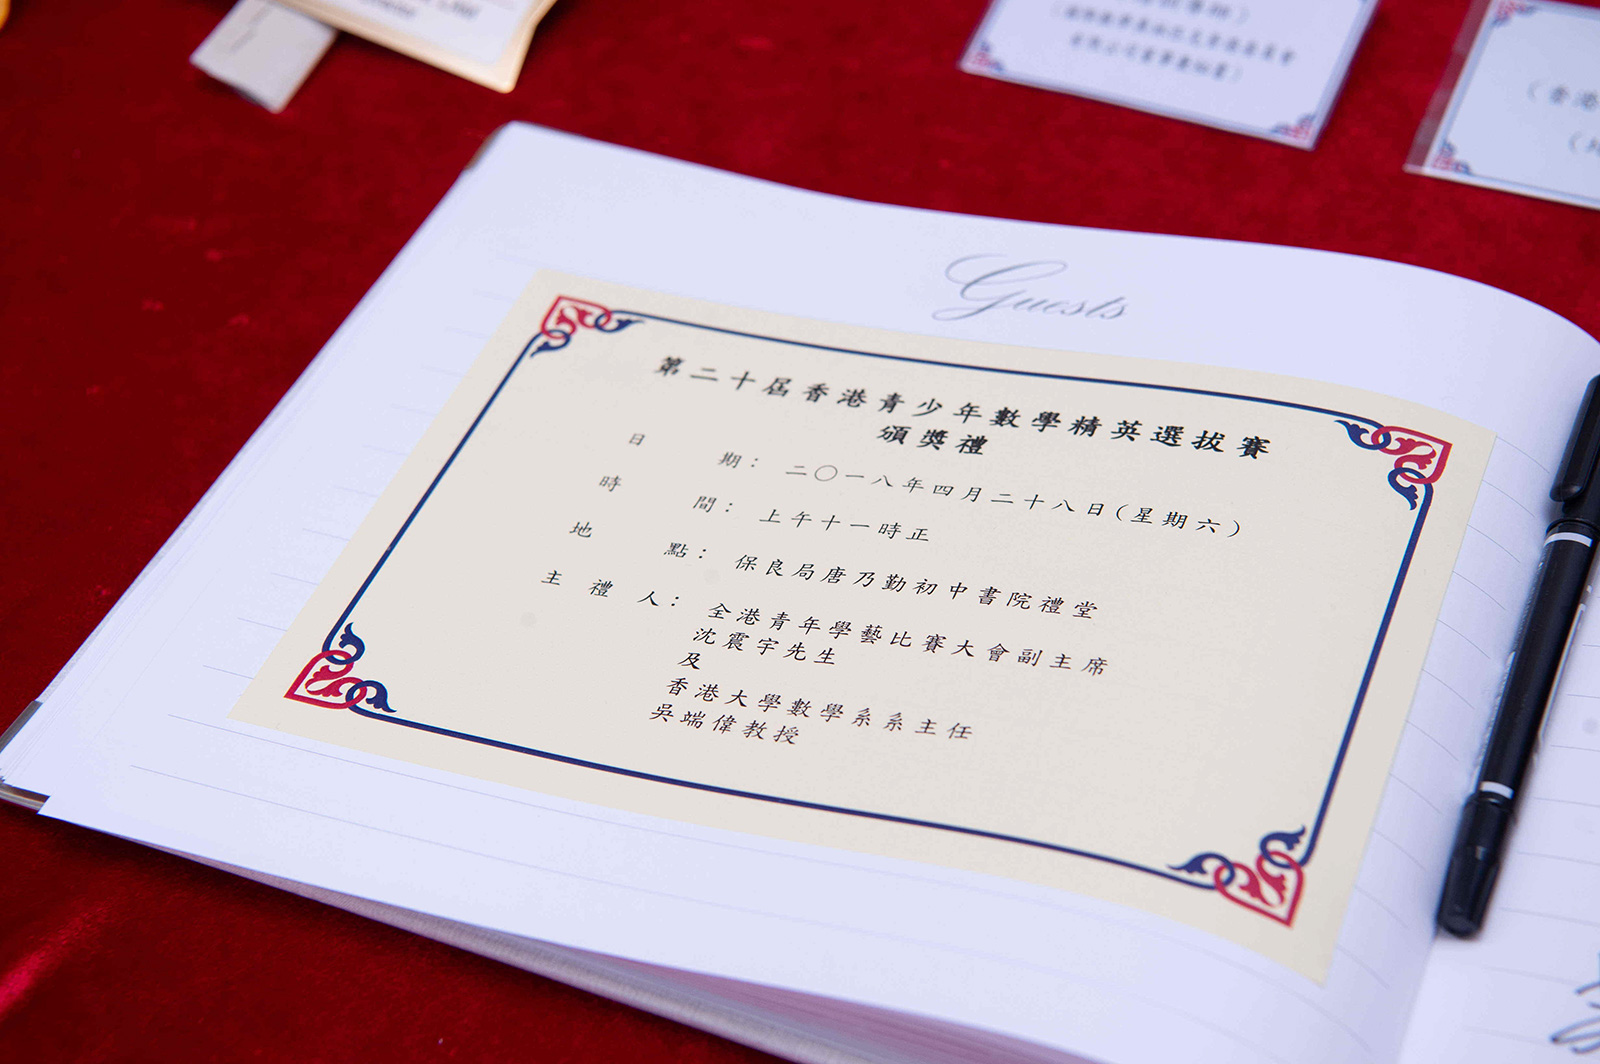 Guests
第二十屆香港青少年數學精英選拔賽
頒獎禮
日期：二〇一八年四月二十八日(星期六)
時間：上午十一時正
地點：保良局唐乃勤初中書院禮堂
主禮人：全港青年學藝比賽大會副主席
沈震宇先生
及
香港大學數學系系主任
吳端偉教授